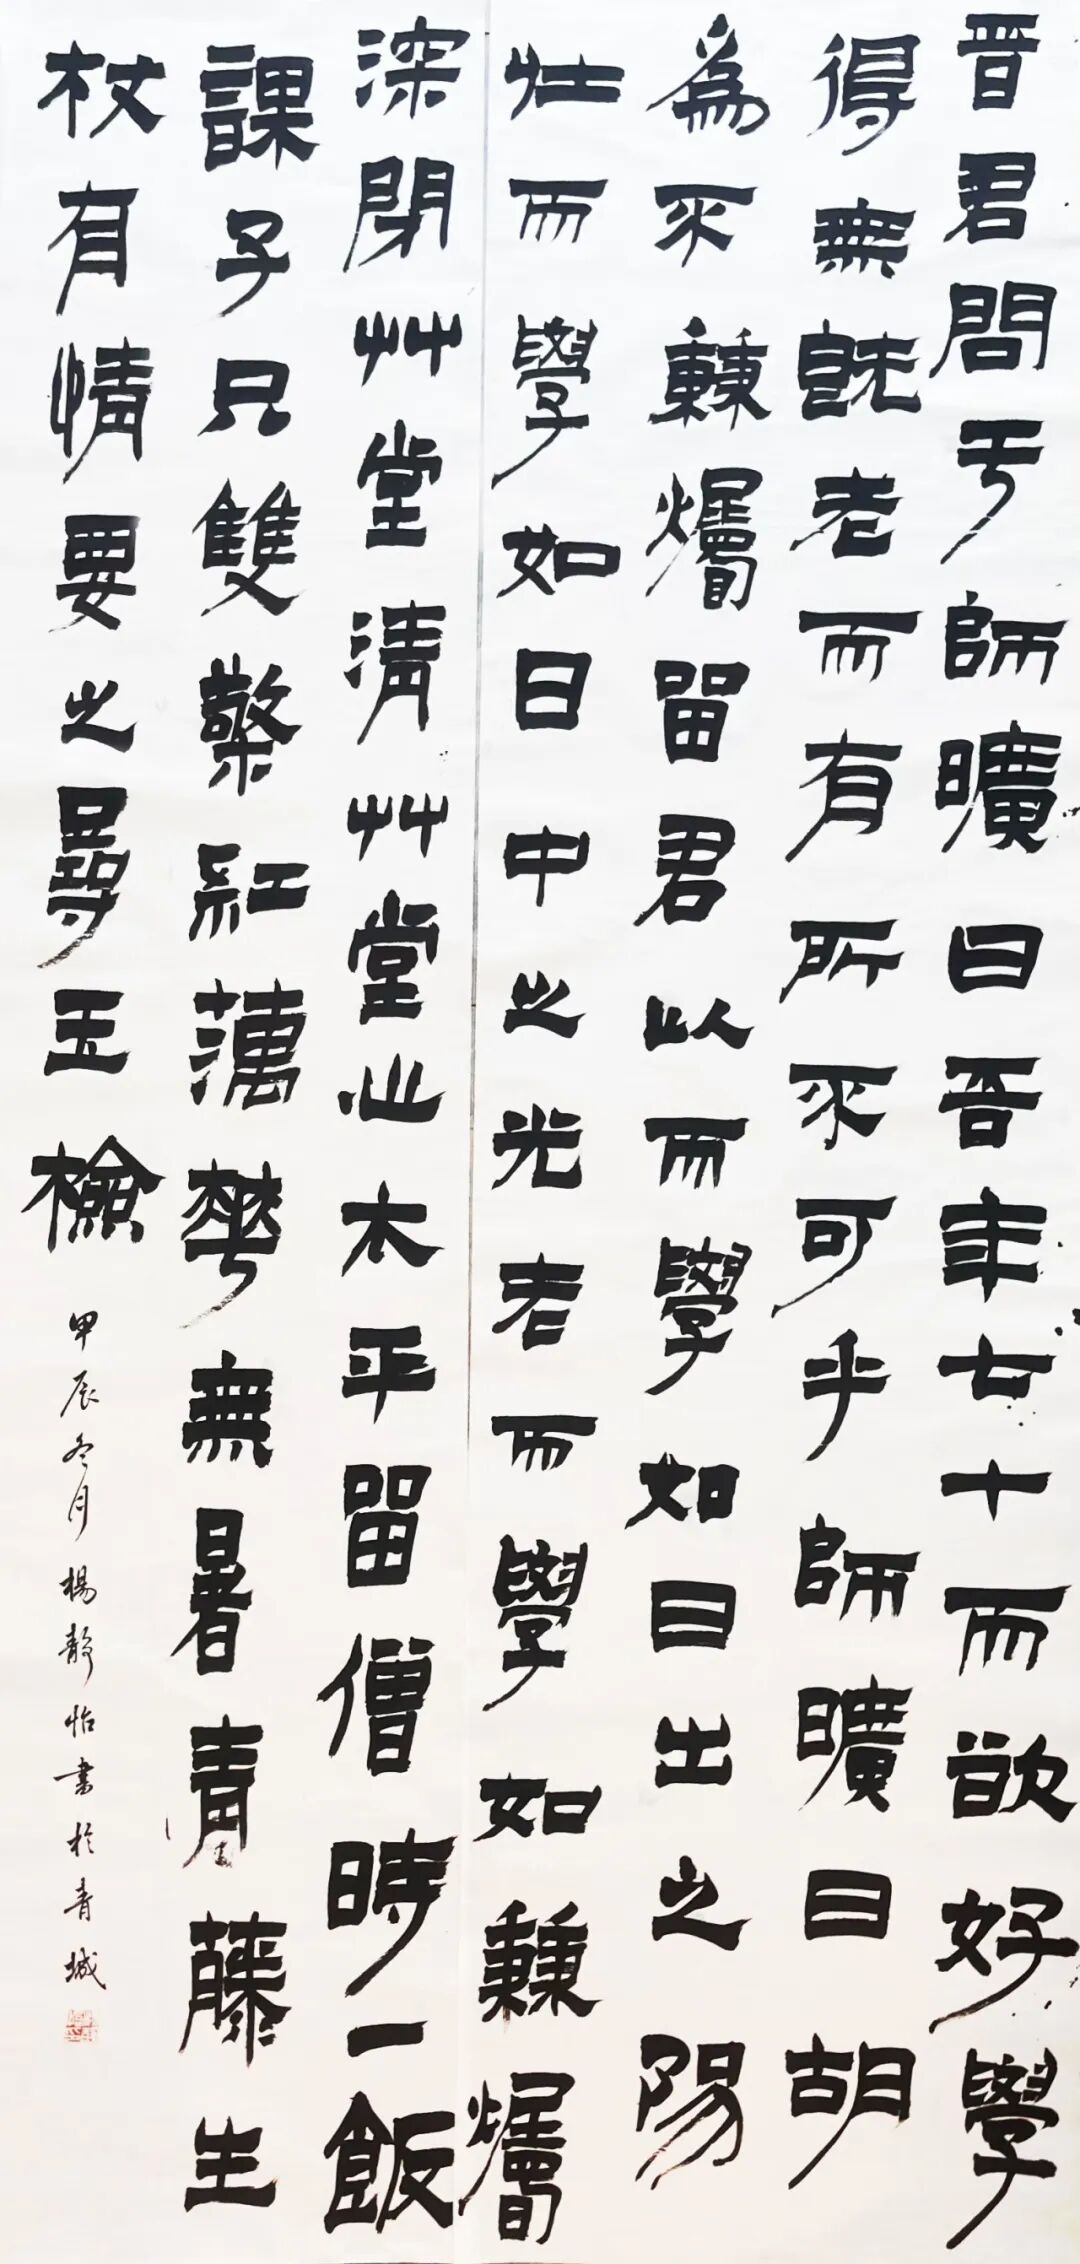 晋君問于師曠曰吾年七十而欲好學
得無既老而有所不可乎師曠曰胡
爲不秉燭留君以而學如日出之陽
壯而學如日中之光老而學如秉燭
深閉艸堂清艸堂山太平留僧時一飯
課子只雙檠紅藕華無暑青藤生
杖有情要之尋玉檢
甲辰冬月楊靜怡書於青城